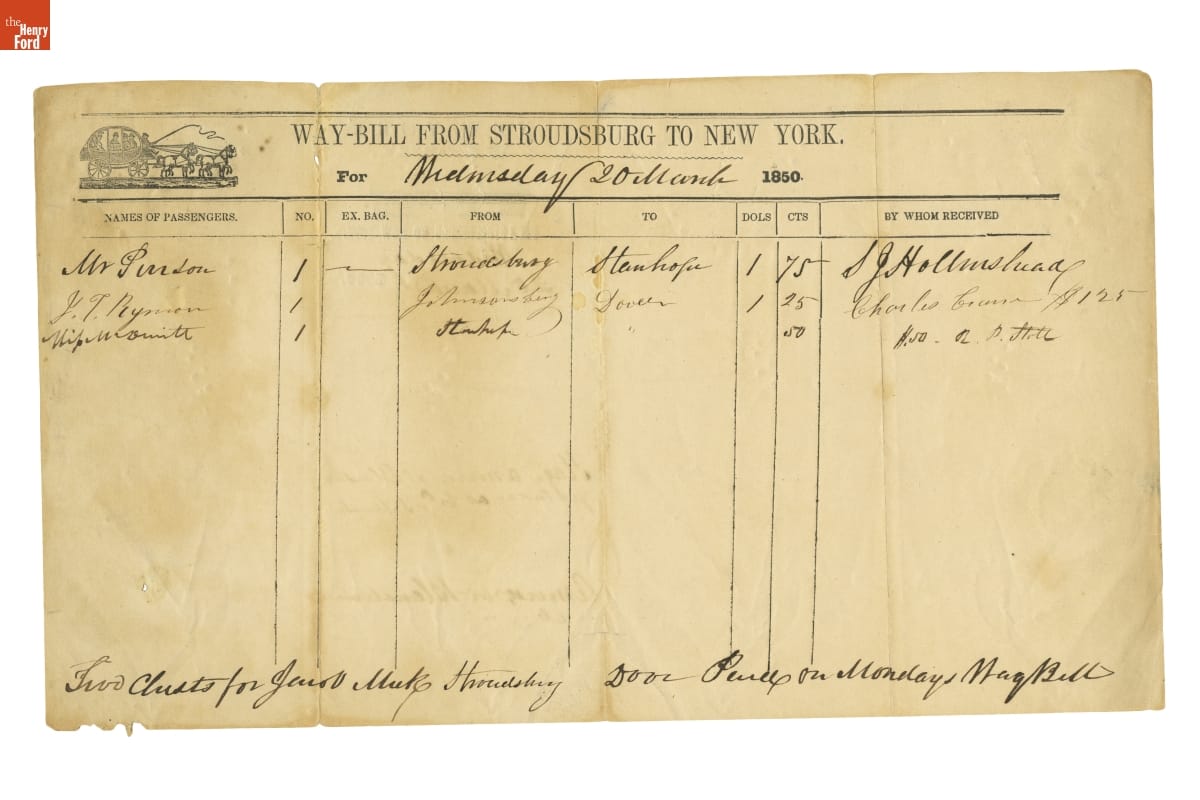 the
Henry
Ford
WAY-BILL FROM STROUDSBURG TO NEW YORK.
For Wednesday 20 March 1850.
NAMES OF PASSENGERS. NO. EX. BAG. FROM TO DOLS CTS BY WHOM RECEIVED
Mr Pinson 1 — Stroudsburg Stanhope 1 75 S J Hollmshead
J. T. Rymon 1 Johnsonsberg Dover 1 25 Charles $1 25
1 Stanhope " 50 $.50 -
Two Chests for Jacob Stroudsburg Dover on Mondays Way Bill